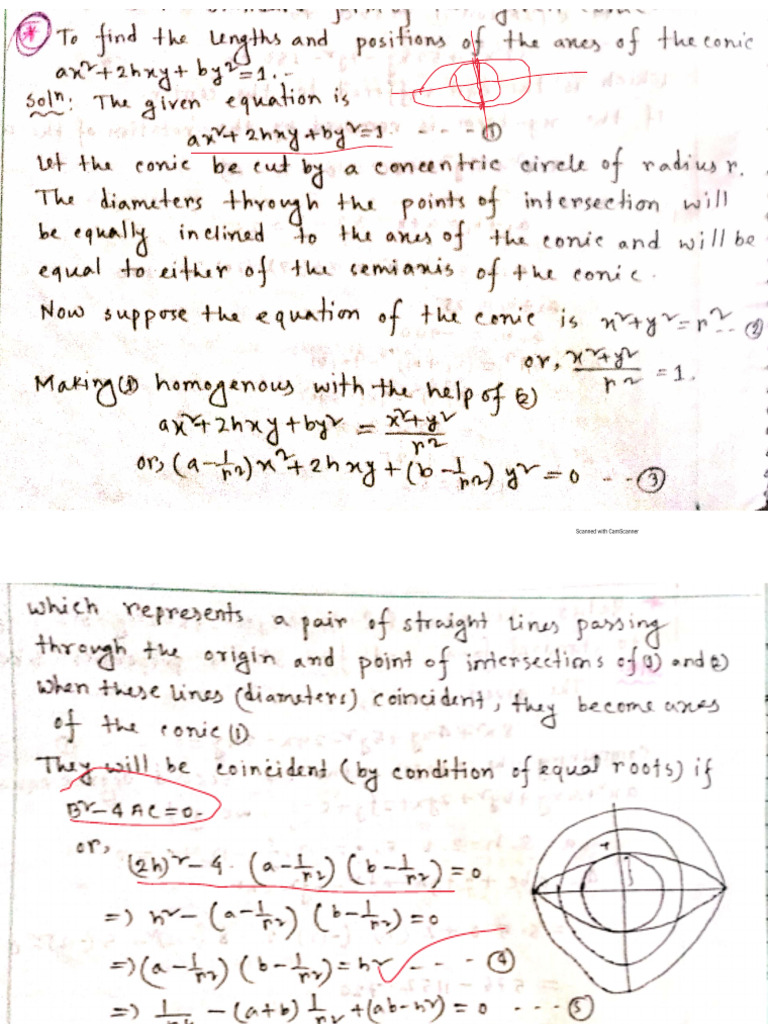 * To find the lengths and positions of the axes of the conic
ax²+2hxy+by²=1.-
Solⁿ: The given equation is
ax²+2hxy+by²=1 - - - - ①
Let the conic be cut by a concentric circle of radius r.
The diameters through the points of intersection will
be equally inclined to the axes of the conic and will be
equal to either of the semiaxis of the conic.
Now suppose the equation of the conic is x²+y²=r² -- ②
or, (x²+y²)/r² = 1.
Making ① homogenous with the help of ②
ax²+2hxy+by² = (x²+y²)/r²
or, (a-1/r²)x²+2hxy+(b-1/r²)y²=0 - - - ③
Scanned with CamScanner
which represents a pair of straight lines passing
through the origin and point of intersections of ① and ②
When these lines (diameters) coincident, they become axes
of the conic ①
They will be coincident (by condition of equal roots) if
B²-4AC=0.
or, (2h)²-4.(a-1/r²)(b-1/r²)=0
=> h²-(a-1/r²)(b-1/r²)=0
=> (a-1/r²)(b-1/r²)=h² - - - - ④
=> 1/r⁴-(a+b)1/r²+(ab-h²)=0 - - - ⑤